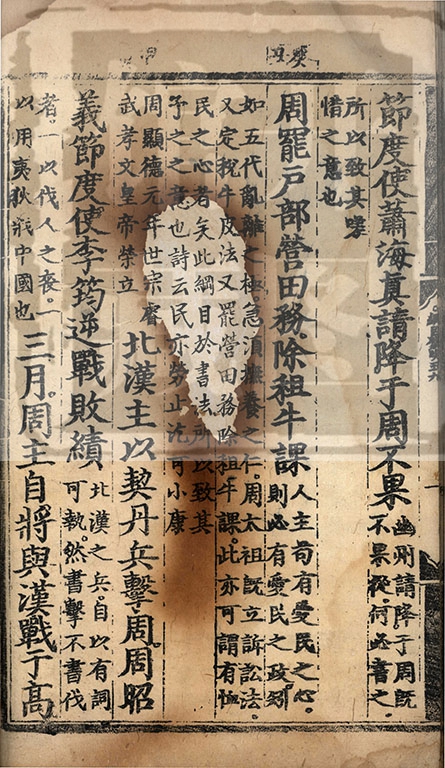 節度使蕭海真請降于周不果
幽州請降于周旣
不果從何必書之
所以致其嘆
惜之意也
周罷戶部營田務除租牛課
人主苟有愛民之心
則必有愛民之政矧
如五代亂離之極急須撫養之仁周太祖旣立訴訟法
又定稅牛皮法又罷營田務除租牛課此亦可謂有恤
民之心者矣此綱目於書法所以致其
予之之意也詩云民亦勞止汔可小康
周顯德元年世宗睿
武孝文皇帝榮立
北漢主以契丹兵擊周周昭
義節度使李筠逆戰敗績
北漢之兵自以有詞
可執然書擊不書伐
者一以伐人之喪一
以用夷狄戕中國也
三月周主自將與漢戰于高